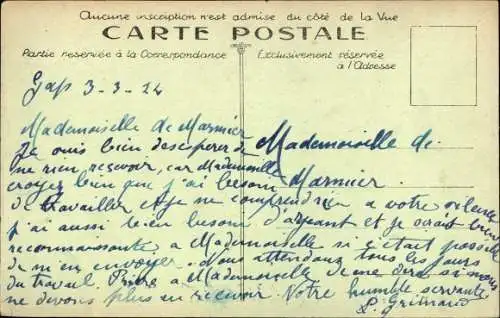 Aucune inscription n'est admise du côté de la Vue
CARTE POSTALE
Partie reservée à la Correspondance
Exclusivement réservée
à l'Adresse
Gap 3-3-24
Mademoiselle de Marmier
Mademoiselle de
Marmier
Je suis bien desesperer de
ne rien reçevoir, car Mademoiselle
croyez bien que j'ai besoin
de travailler et je ne comprend rien a votre silence
j'ai aussi bien besoin d'argeant et je serait bien
reconnaissante a Mademoiselle si c'était possible
de m'en envoyer. Nous attendons tous les jours
du travail. Prière a Mademoiselle de me dire si nous
ne devons plus en reçevoir. Votre humble servante